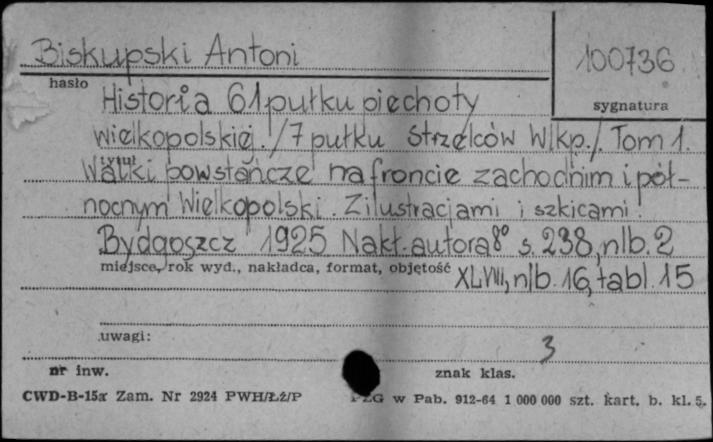 Biskupski Antoni
100736
hasło
sygnatura
Historia 61 pułku piechoty
wielkopolskiej. /7 pułku Strzelców Wlkp./. Tom 1.
tytuł
Walki powstańcze na froncie zachodnim i pół-
nocnym Wielkopolski. Z ilustracjami i szkicami.
Bydgoszcz 1925 Nakł. autora 8° s. 238, nlb. 2
miejsce, rok wyd., nakładca, format, objętość
XLVIII, nlb. 16, tabl. 15
uwagi:
3
nr inw.
znak klas.
CWD-B-15a Zam. Nr 2924 PWH/Łż/P
PZG w Pab. 912-64 1 000 000 szt. kart. b. kl. 5.